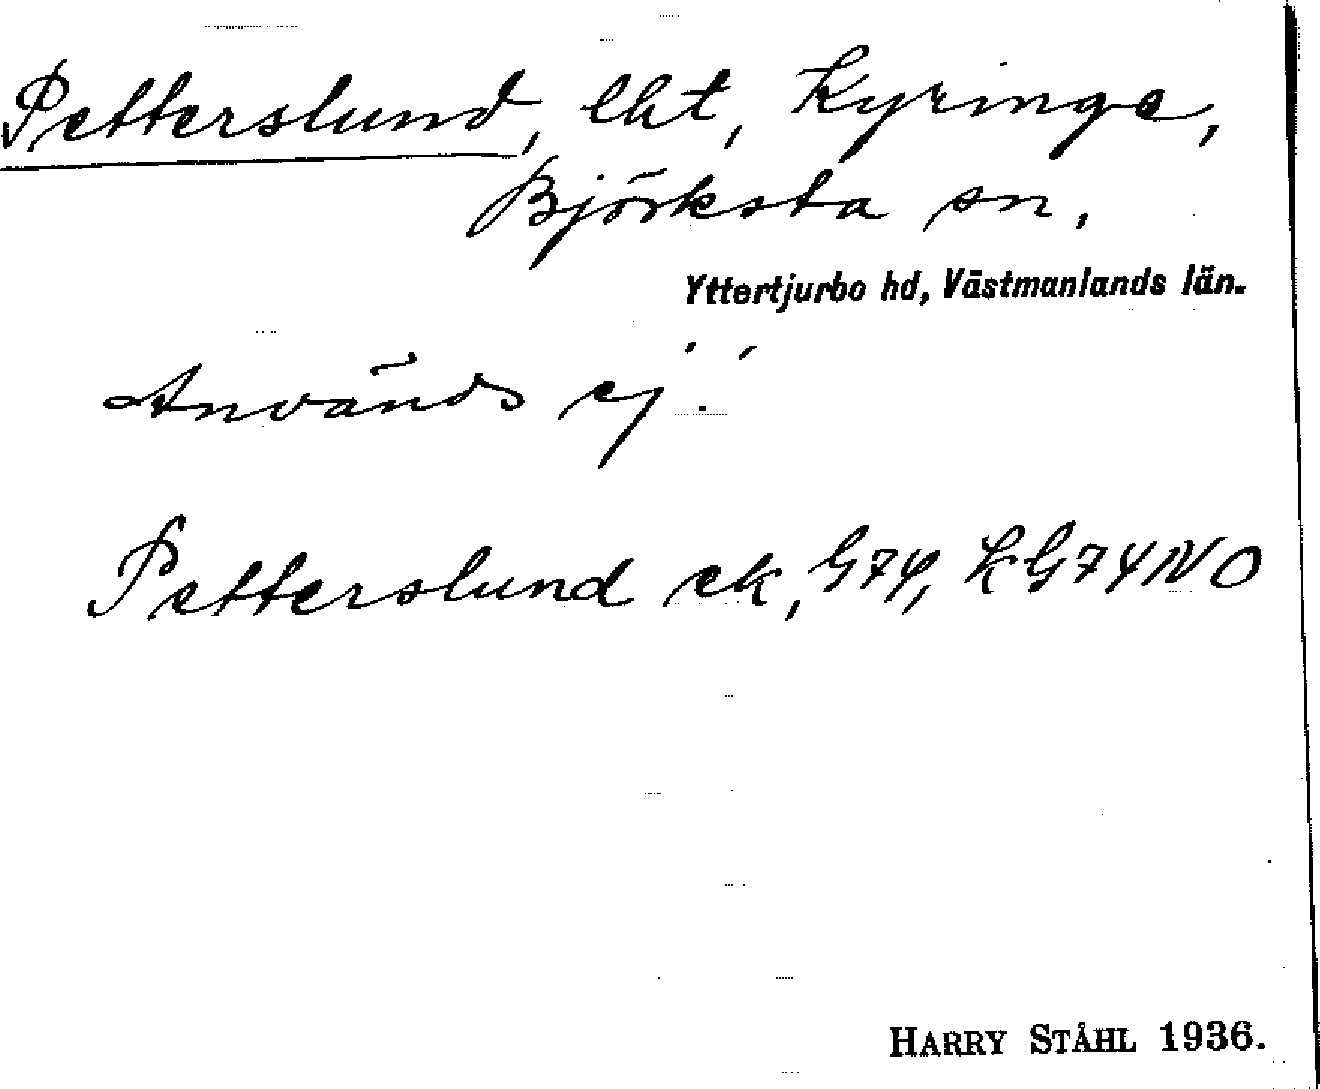 Petterslund, lht, Kyringe,
Björksta sn,
Yttertjurbo hd, Västmanlands län.
Används ej.
Petterslund ek, G74, KG74NO
HARRY STÅHL 1936.